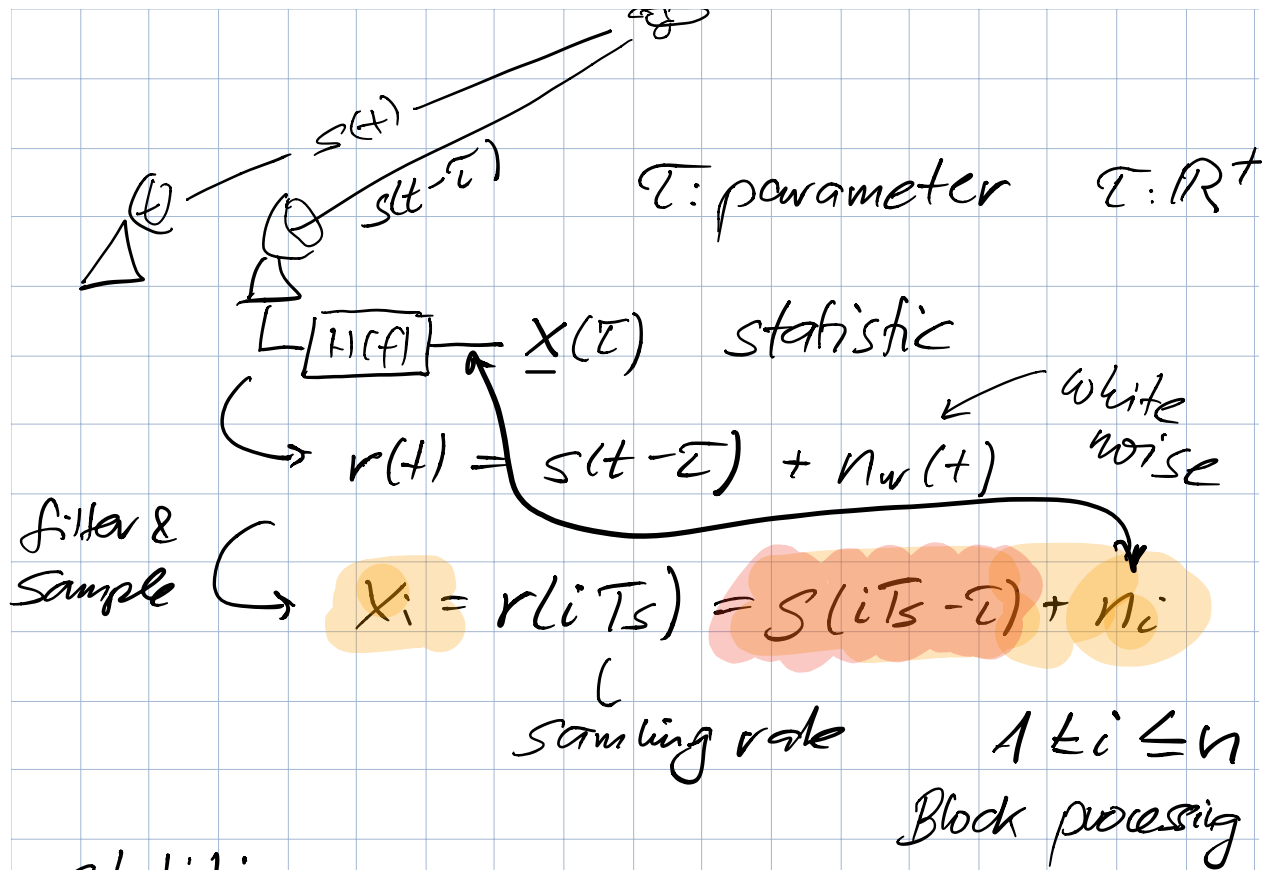 s(t)
(t)
s(t-τ)
τ: parameter τ: ℝ⁺
H(f) X(τ) statistic
white
noise
r(t) = s(t-τ) + n_w(t)
filter &
sample
X_i = r(iTs) = s(iTs-τ) + n_i
samling rate 1 ≤ i ≤ n
Block processing